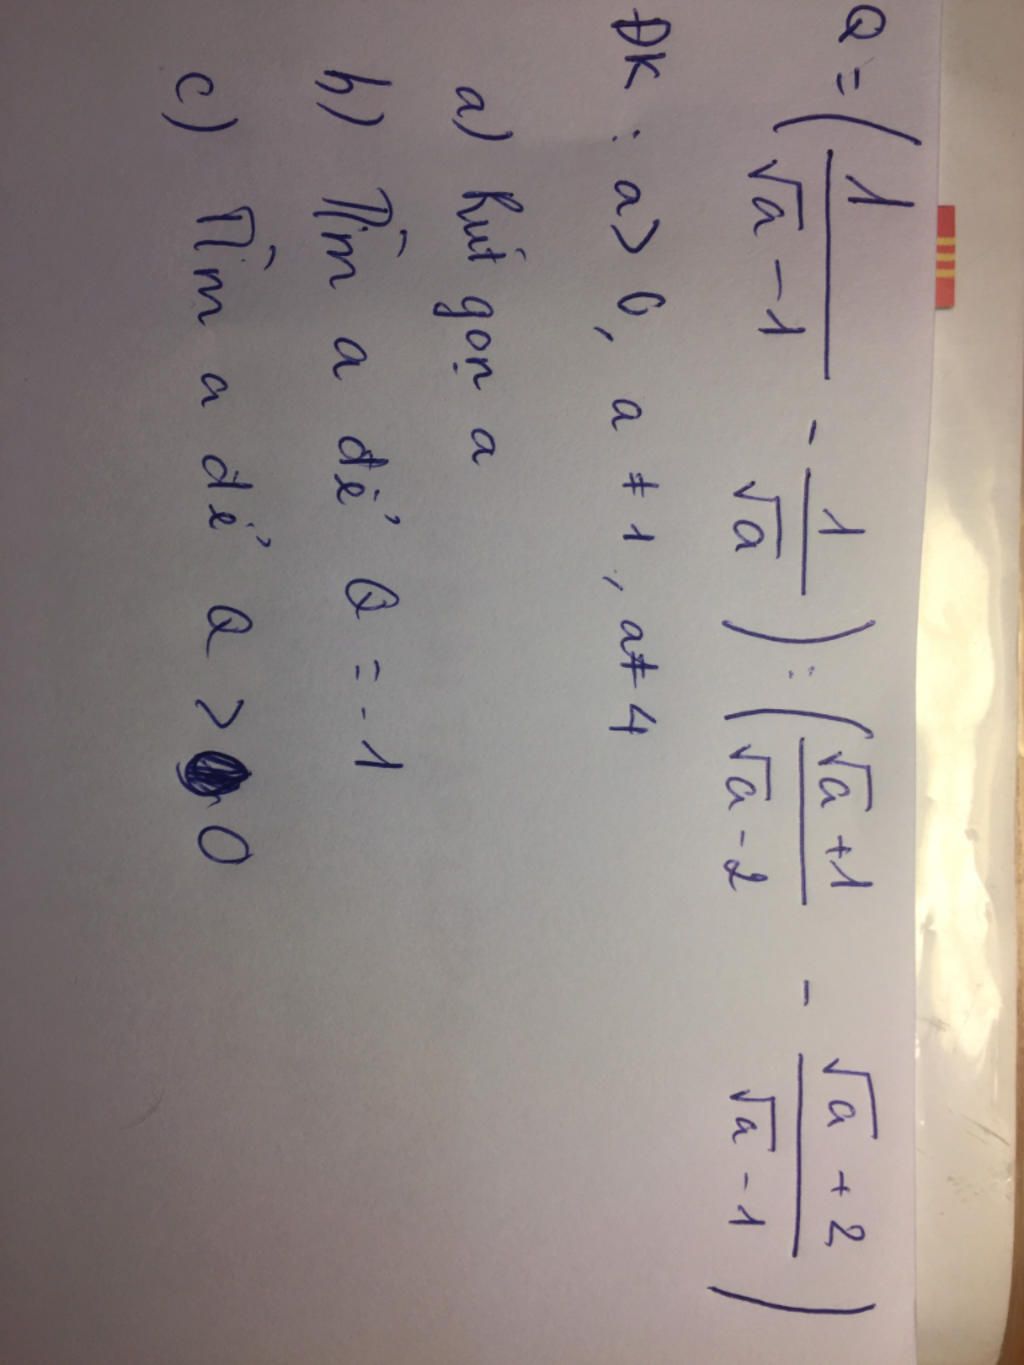 Q = ( 1/(√a - 1) - 1/√a ) : ( (√a + 1)/(√a - 2) - (√a + 2)/(√a - 1) )
ĐK : a > 0, a ≠ 1, a ≠ 4
a) Rút gọn a
b) Tìm a để Q = -1
c) Tìm a để Q > 0